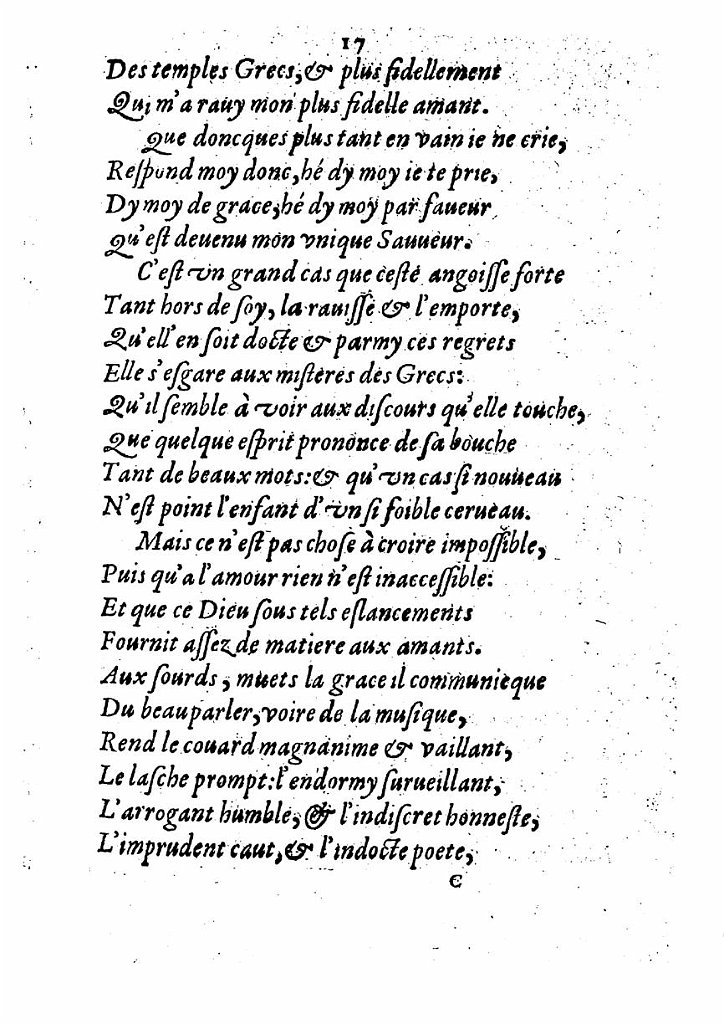 17
Des temples Grecs, & plus fidellement
Qui m'a rauy mon plus fidelle amant.
Que doncques plus tant en vain ie ne crie,
Reſpond moy donc, hé dy moy ie te prie,
Dy moy de grace, hé dy moy par faueur
Qu'eſt deuenu mon vnique Sauueur.
C'eſt vn grand cas que ceſte angoiſſe forte
Tant hors de ſoy, la rauiſſe & l'emporte,
Qu'ell' en ſoit docte & parmy ces regrets
Elle s'eſgare aux miſteres des Grecs:
Qu'il ſemble à voir aux diſcours qu'elle touche,
Que quelque eſprit prononce de ſa bouche
Tant de beaux mots: & qu'vn cas ſi nouueau
N'eſt point l'enfant d'vn ſi foible cerueau.
Mais ce n'eſt pas choſe à croire impoſſible,
Puis qu'a l'amour rien n'eſt inacceſſible:
Et que ce Dieu ſous tels eſlancements
Fournit aſſez de matiere aux amants.
Aux ſourds, muets la grace il communicque
Du beau parler, voire de la muſique,
Rend le couard magnanime & vaillant,
Le laſche prompt: l'endormy ſurueillant,
L'arrogant humble, & l'indiſcret honneſte,
L'imprudent caut, & l'indocte poete,
C